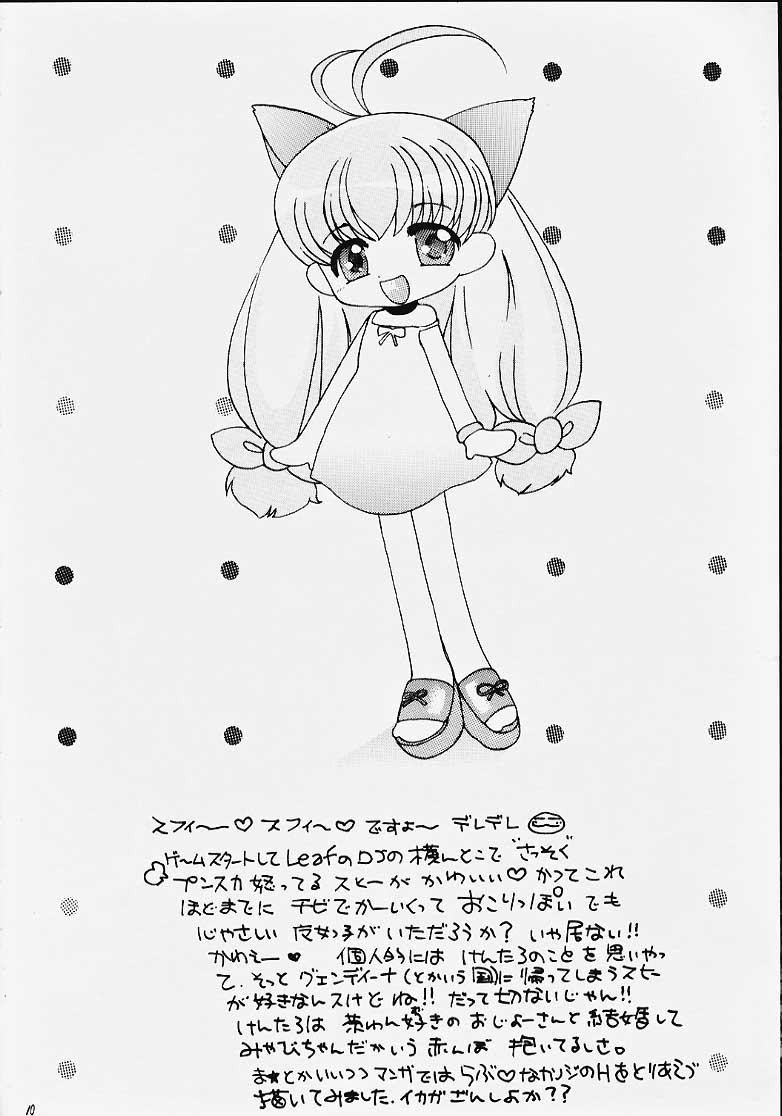 スフィ〜ー♡ スフィ〜♡ ですょ〜 デレデレ
ゲームスタートして LeafのDJの横んとこで さっそく
プンスカ怒ってる スヒーが かわいい♡ かつてこれ
ほどまでに チビでかーいくって おこりっぽい でも
じゃさしい 女っ子がいただろうか? いや居ない!!
かわえー♡ 個人的には けんたろのことを思いやっ
て、そっと グェンディーナ(とかいう国)に 帰ってしまうスヒー
が好きなんスけど ね!! だって切ないじゃん!!
けんたろは 茶わん好きの おじょーさんと 結婚して
みやびちゃんだかいう 赤んぼ 抱いてるしさ。
ま★とかいいつつ マンガでは らぶ♡なカンジのHをとりあえず
描いてみました、イカがざんしよか??
10